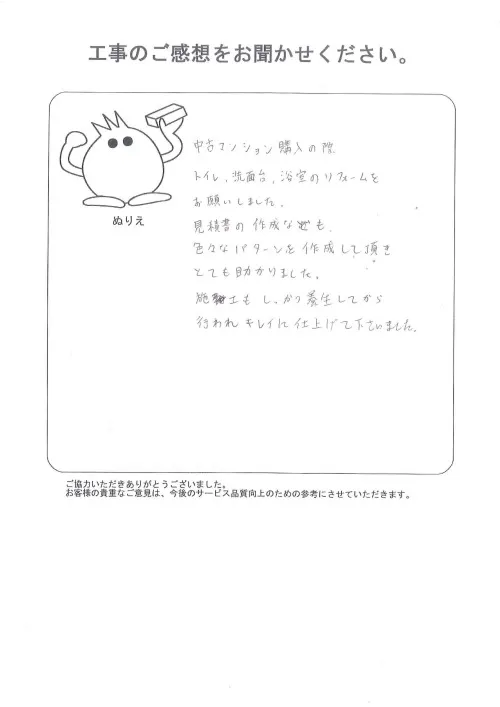 工事のご感想をお聞かせください。
ぬりえ
中古マンション購入の際
トイレ、洗面台、浴室のリフォームを
お願いしました。
見積書の作成なども、
色々なパターンを作成して頂き
とても助かりました。
施工もしっかり養生してから
行われキレイに仕上げて下さいました。
ご協力いただきありがとうございました。
お客様の貴重なご意見は、今後のサービス品質向上のための参考にさせていただきます。